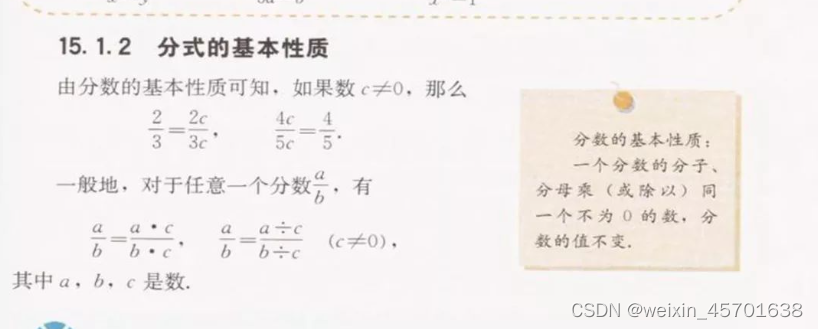 15.1.2 分式的基本性质
由分数的基本性质可知,如果数 c≠0,那么
2/3=2c/3c, 4c/5c=4/5.
一般地,对于任意一个分数a/b,有
a/b=a·c/b·c, a/b=a÷c/b÷c (c≠0),
其中 a,b,c 是数.
分数的基本性质:
一个分数的分子、
分母乘(或除以)同
一个不为 0 的数,分
数的值不变.
CSDN @weixin_45701638